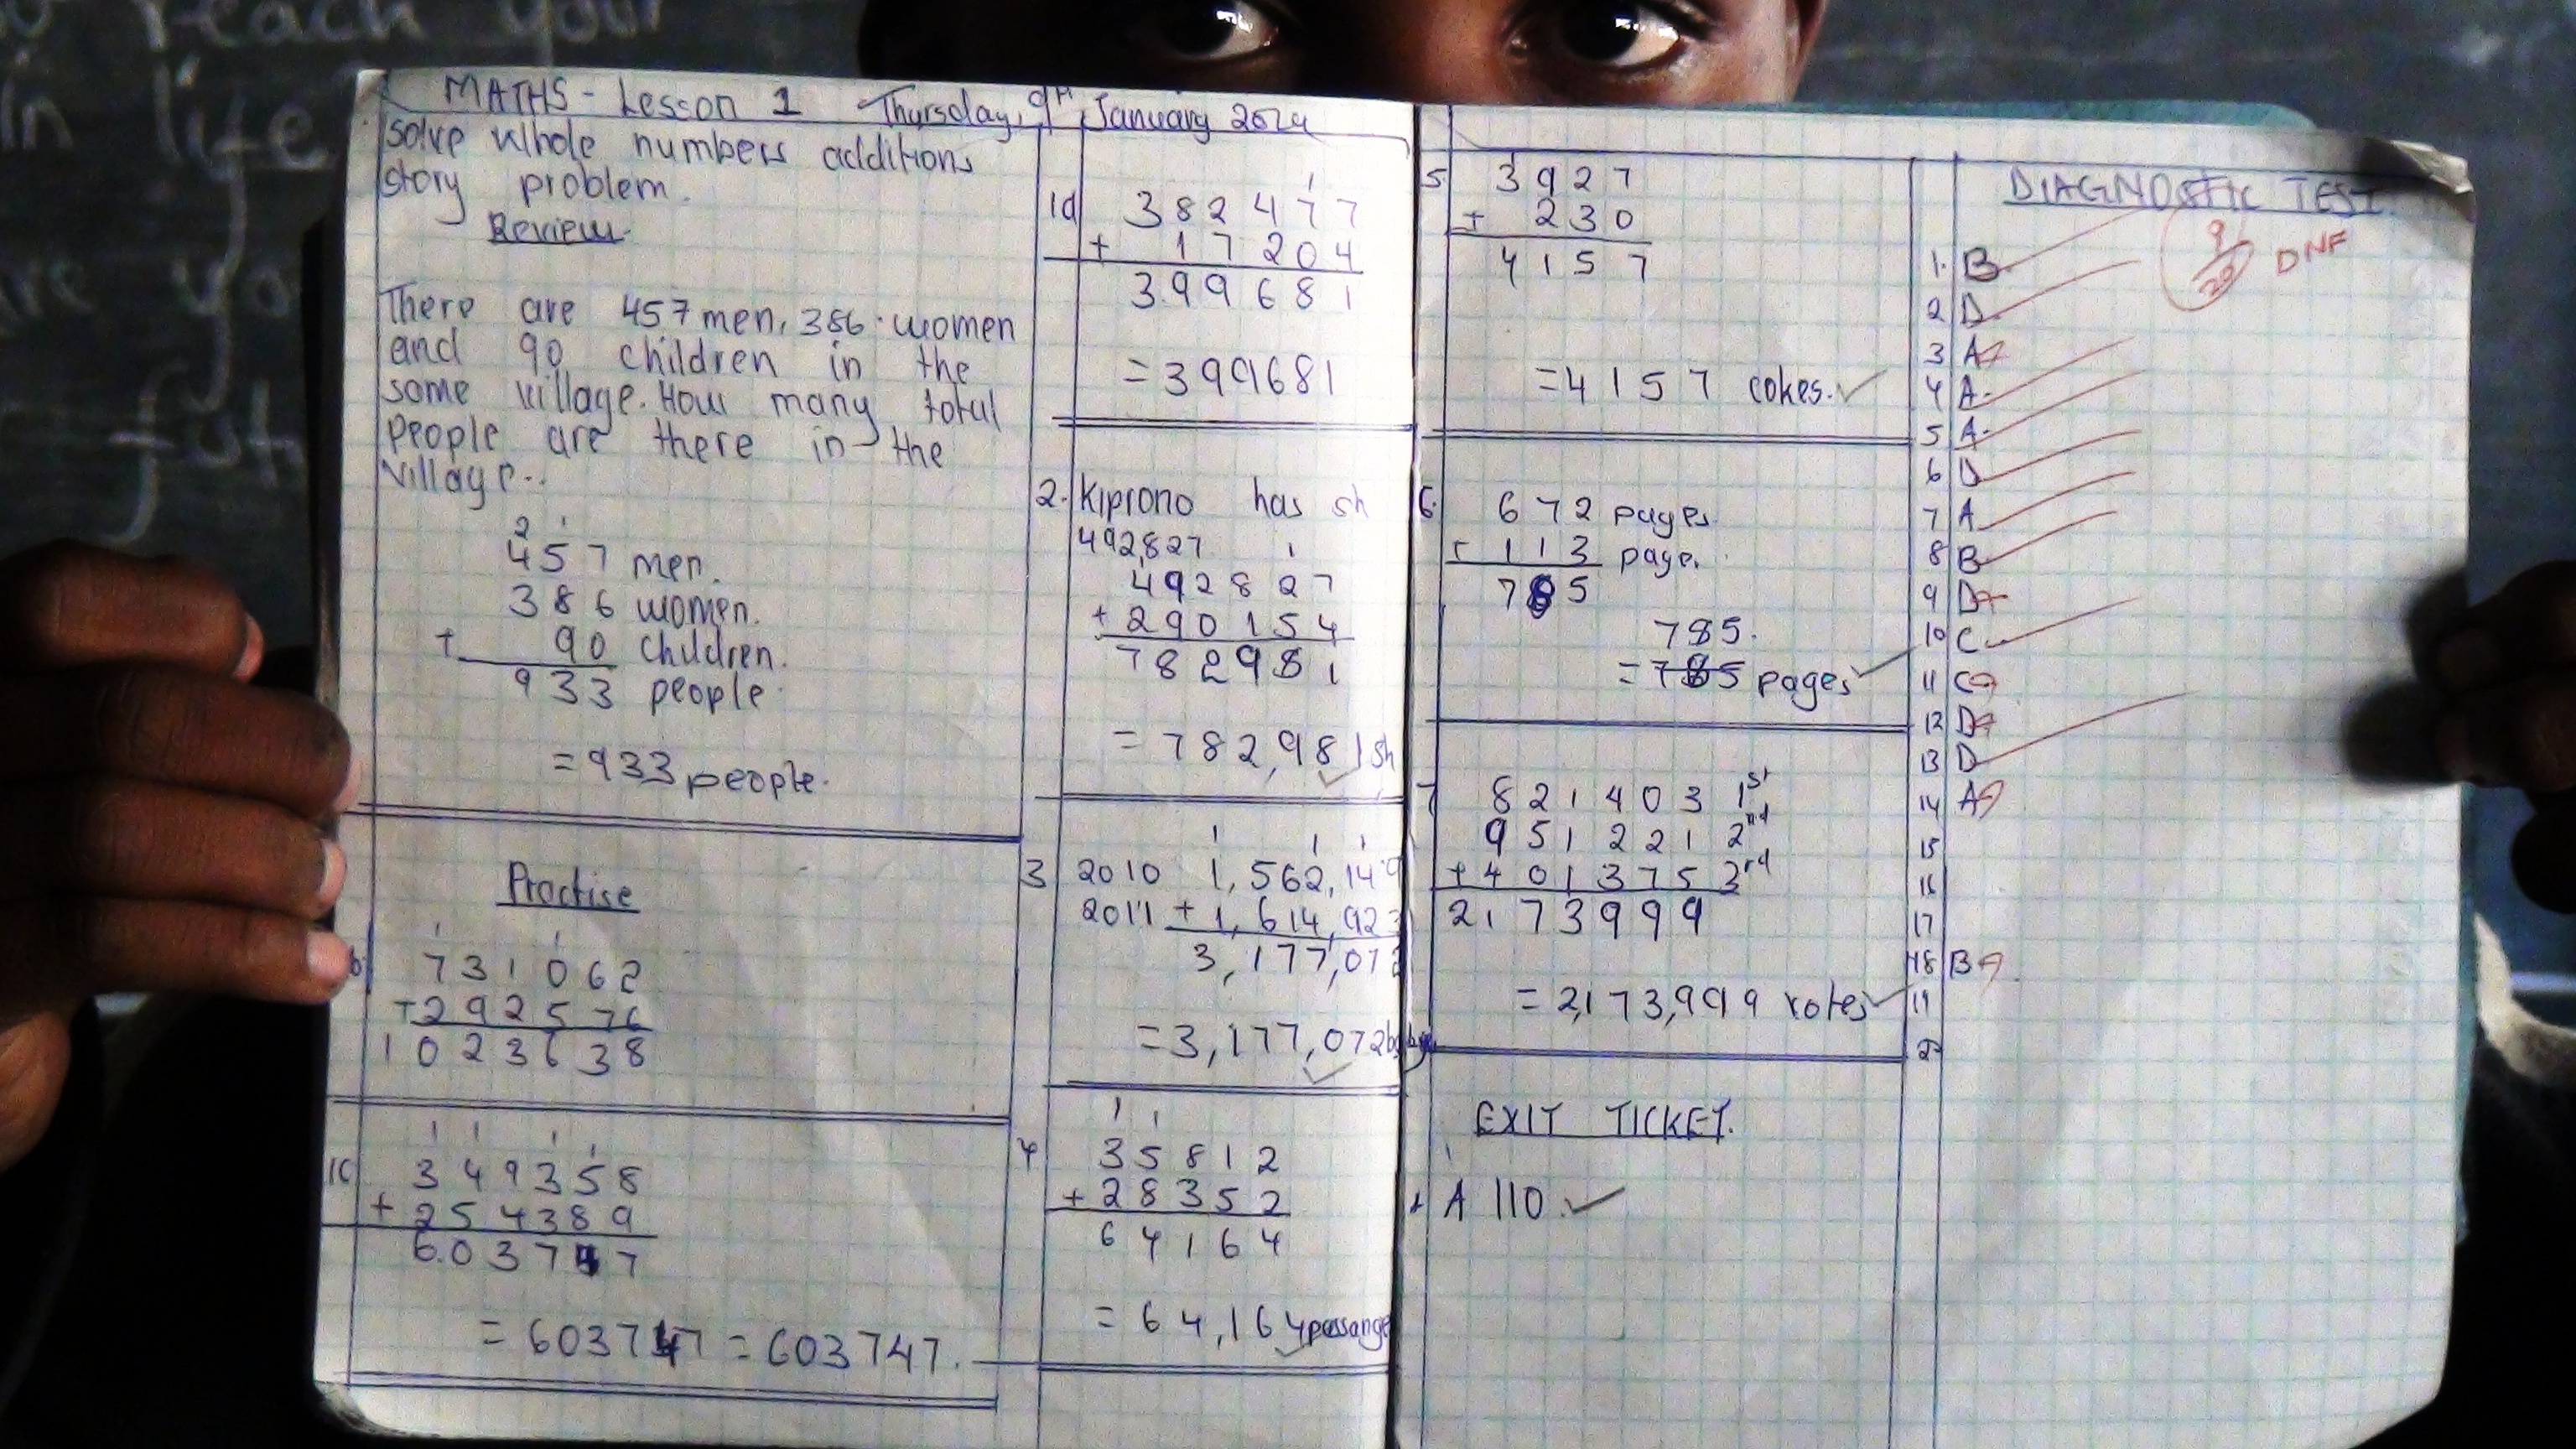 MATHS - Lesson 1 Thursday, 9th January 2024
Solve whole numbers additions
story problem.
Review
There are 457 men, 386 women
and 90 children in the
some village. How many total
people are there in the
village..
2 1
457 men.
386 women.
+ 90 children.
933 people
= 933 people.
Practise
1 1
b. 731062
+292576
1023638
1 1 1 1
1c 349358
+ 254389
603747
= 603747 = 603747.
1
1d 382477
+ 17204
399681
= 399681
2. Kiprono has sh
492,827 1
1
492827
+ 290154
782981
= 782,981 sh
1 1 1
3 2010 1,562,149
2011 + 1,614,923
3,177,072
= 3,177,072
1 1
4 35812
+ 28352
64164
= 64,164 passange
1
5. 3927
+ 230
4157
= 4157 cokes.
6. 672 pages
+ 113 page.
785
785.
= 785 pages
7 821403 1st
951221 2nd
+ 401375 3rd
2173999
= 2,173,999 votes
EXIT TICKET.
1 A 110
DIAGNOSTIC TEST
9/20 DNF
1. B
2 D
3 A
4 A
5 A
6 D
7 A
8 B
9 D
10 C
11 C
12 D
13 D
14 A
15
16
17
18 B
19
reach your
in life